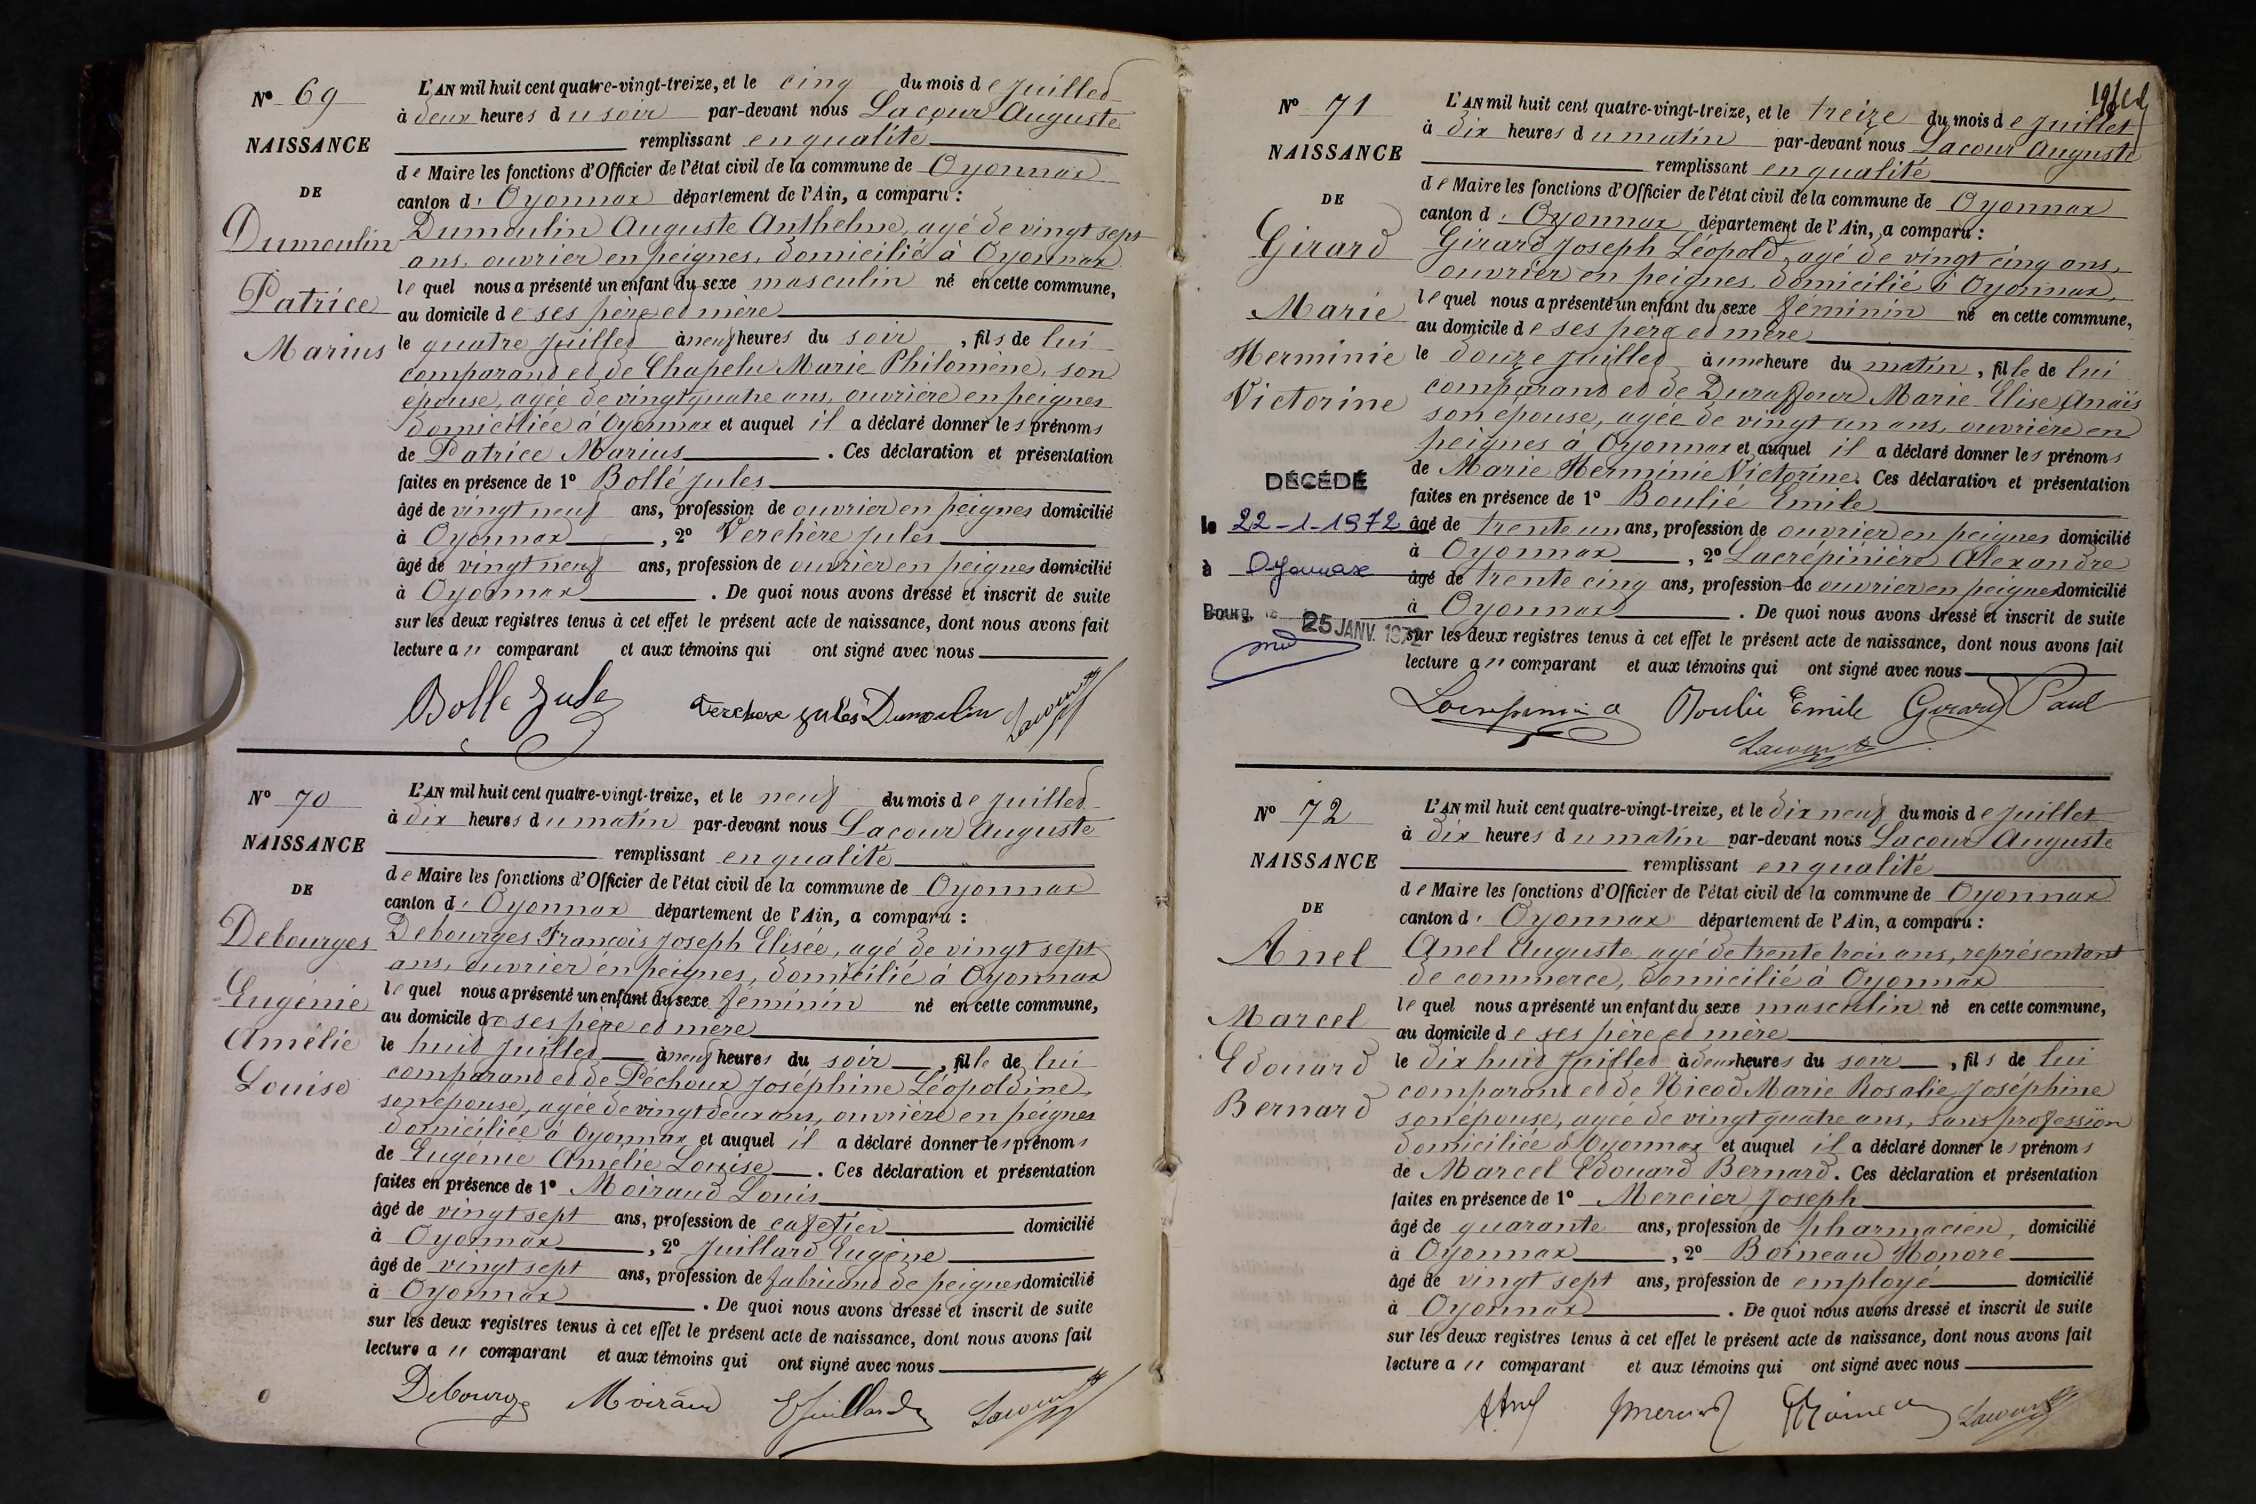 N° 69
NAISSANCE
DE
Dumoulin
Patrice
Marius
L'AN mil huit cent quatre-vingt-treize, et le cinq du mois de Juillet
à deux heures du soir par-devant nous Lacour Auguste
remplissant en qualité
de Maire les fonctions d'Officier de l'état civil de la commune de Oyonnax
canton d' Oyonnax département de l'Ain, a comparu :
Dumoulin Auguste Anthelme, agé de vingt sept
ans, ouvrier en peignes, domicilié à Oyonnax
lequel nous a présenté un enfant du sexe masculin né en cette commune,
au domicile de ses père et mère
le quatre Juillet à neuf heures du soir, fils de lui
comparant et de Chapelu Marie Philomène, son
épouse, agée de vingt quatre ans, ouvrière en peignes
domiciliée à Oyonnax et auquel il a déclaré donner les prénoms
de Patrice Marius. Ces déclaration et présentation
faites en présence de 1° Bollé Jules
âgé de vingt neuf ans, profession de ouvrier en peignes domicilié
à Oyonnax, 2° Verchère Jules
âgé de vingt neuf ans, profession de ouvrier en peignes domicilié
à Oyonnax. De quoi nous avons dressé et inscrit de suite
sur les deux registres tenus à cet effet le présent acte de naissance, dont nous avons fait
lecture au comparant et aux témoins qui ont signé avec nous
Bolle Jules Verchere Jules Dumoulin Lacour
N° 70
NAISSANCE
DE
Debourges
Eugénie
Amélie
Louise
L'AN mil huit cent quatre-vingt-treize, et le neuf du mois de Juillet
à dix heures du matin par-devant nous Lacour Auguste
remplissant en qualité
de Maire les fonctions d'Officier de l'état civil de la commune de Oyonnax
canton d' Oyonnax département de l'Ain, a comparu :
Debourges François Joseph Elisée, agé de vingt sept
ans, ouvrier en peignes, domicilié à Oyonnax
lequel nous a présenté un enfant du sexe féminin né en cette commune,
au domicile de ses père et mère
le huit Juillet à neuf heures du soir, fille de lui
comparant et de Péchoux Joséphine Léopoldine
son épouse, agée de vingt deux ans, ouvrière en peignes
domiciliée à Oyonnax et auquel il a déclaré donner les prénoms
de Eugénie Amélie Louise. Ces déclaration et présentation
faites en présence de 1° Moiraud Louis
âgé de vingt sept ans, profession de cafetier domicilié
à Oyonnax, 2° Juillard Eugène
âgé de vingt sept ans, profession de fabricant de peignes domicilié
à Oyonnax. De quoi nous avons dressé et inscrit de suite
sur les deux registres tenus à cet effet le présent acte de naissance, dont nous avons fait
lecture au comparant et aux témoins qui ont signé avec nous
Debourges Moiraud E Juillard Lacour
N° 71
NAISSANCE
DE
Girard
Marie
Herminie
Victorine
DÉCÉDÉ
le 22-1-1972
à Oyonnax
Bourg, le 25 JANV. 1972
L'AN mil huit cent quatre-vingt-treize, et le treize du mois de Juillet
à dix heures du matin par-devant nous Lacour Auguste
remplissant en qualité
de Maire les fonctions d'Officier de l'état civil de la commune de Oyonnax
canton d' Oyonnax département de l'Ain, a comparu :
Girard Joseph Léopold, agé de vingt cinq ans,
ouvrier en peignes domicilié à Oyonnax,
lequel nous a présenté un enfant du sexe féminin né en cette commune,
au domicile de ses père et mère
le douze Juillet à une heure du matin, fille de lui
comparant et de Duraffour Marie Elise Anaïs
son épouse, agée de vingt un ans, ouvrière en
peignes à Oyonnax et auquel il a déclaré donner les prénoms
de Marie Herminie Victorine. Ces déclaration et présentation
faites en présence de 1° Boulié Emile
âgé de trente un ans, profession de ouvrier en peignes domicilié
à Oyonnax, 2° Lacrépinière Alexandre
âgé de trente cinq ans, profession de ouvrier en peignes domicilié
à Oyonnax. De quoi nous avons dressé et inscrit de suite
sur les deux registres tenus à cet effet le présent acte de naissance, dont nous avons fait
lecture au comparant et aux témoins qui ont signé avec nous
Boulié Emile Girard Paul
Lacour
N° 72
NAISSANCE
DE
Anel
Marcel
Edouard
Bernard
L'AN mil huit cent quatre-vingt-treize, et le dix neuf du mois de Juillet
à dix heures du matin par-devant nous Lacour Auguste
remplissant en qualité
de Maire les fonctions d'Officier de l'état civil de la commune de Oyonnax
canton d' Oyonnax département de l'Ain, a comparu :
Anel Auguste, agé de trente trois ans, représentant
de commerce, domicilié à Oyonnax
lequel nous a présenté un enfant du sexe masculin né en cette commune,
au domicile de ses père et mère
le dix huit Juillet à deux heures du soir, fils de lui
comparant et de Nicod Marie Rosalie Joséphine
son épouse, agée de vingt quatre ans, sans profession
domiciliée à Oyonnax et auquel il a déclaré donner les prénoms
de Marcel Edouard Bernard. Ces déclaration et présentation
faites en présence de 1° Mercier Joseph
âgé de quarante ans, profession de pharmacien, domicilié
à Oyonnax, 2° Boineau Honoré
âgé de vingt sept ans, profession de employé domicilié
à Oyonnax. De quoi nous avons dressé et inscrit de suite
sur les deux registres tenus à cet effet le présent acte de naissance, dont nous avons fait
lecture au comparant et aux témoins qui ont signé avec nous
Lacour